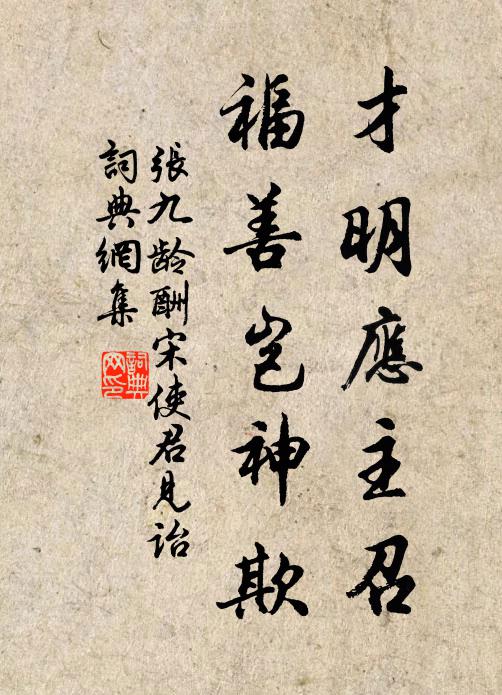 才明應主召
福善豈神欺
張九龄酬宋使君見詒
詞典網集
詞典網印